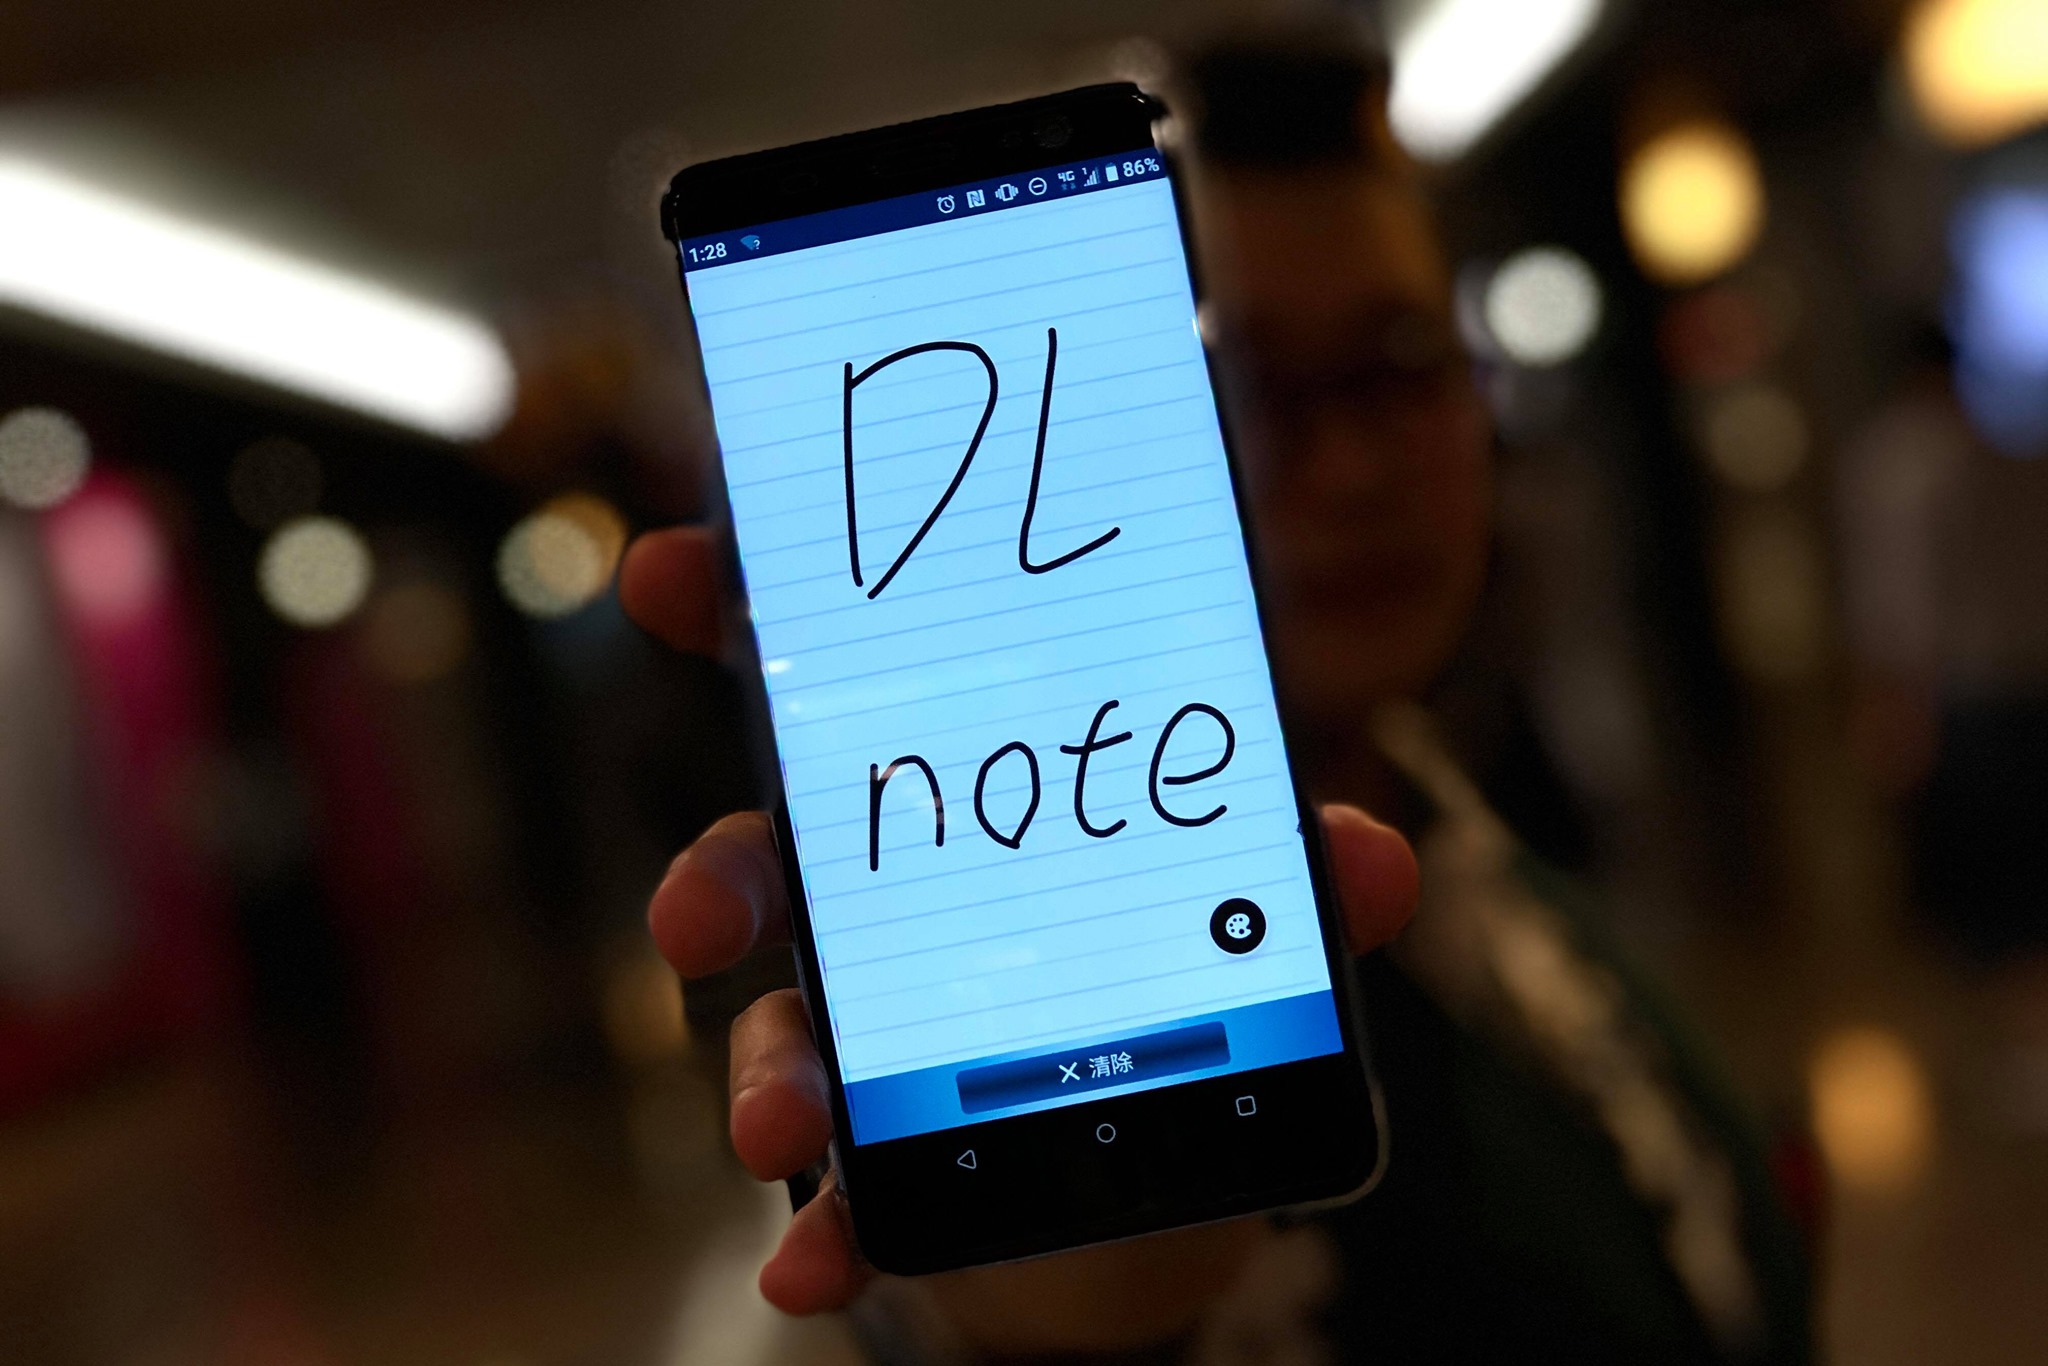 1:28 4G 1 86%
DL
note
清除